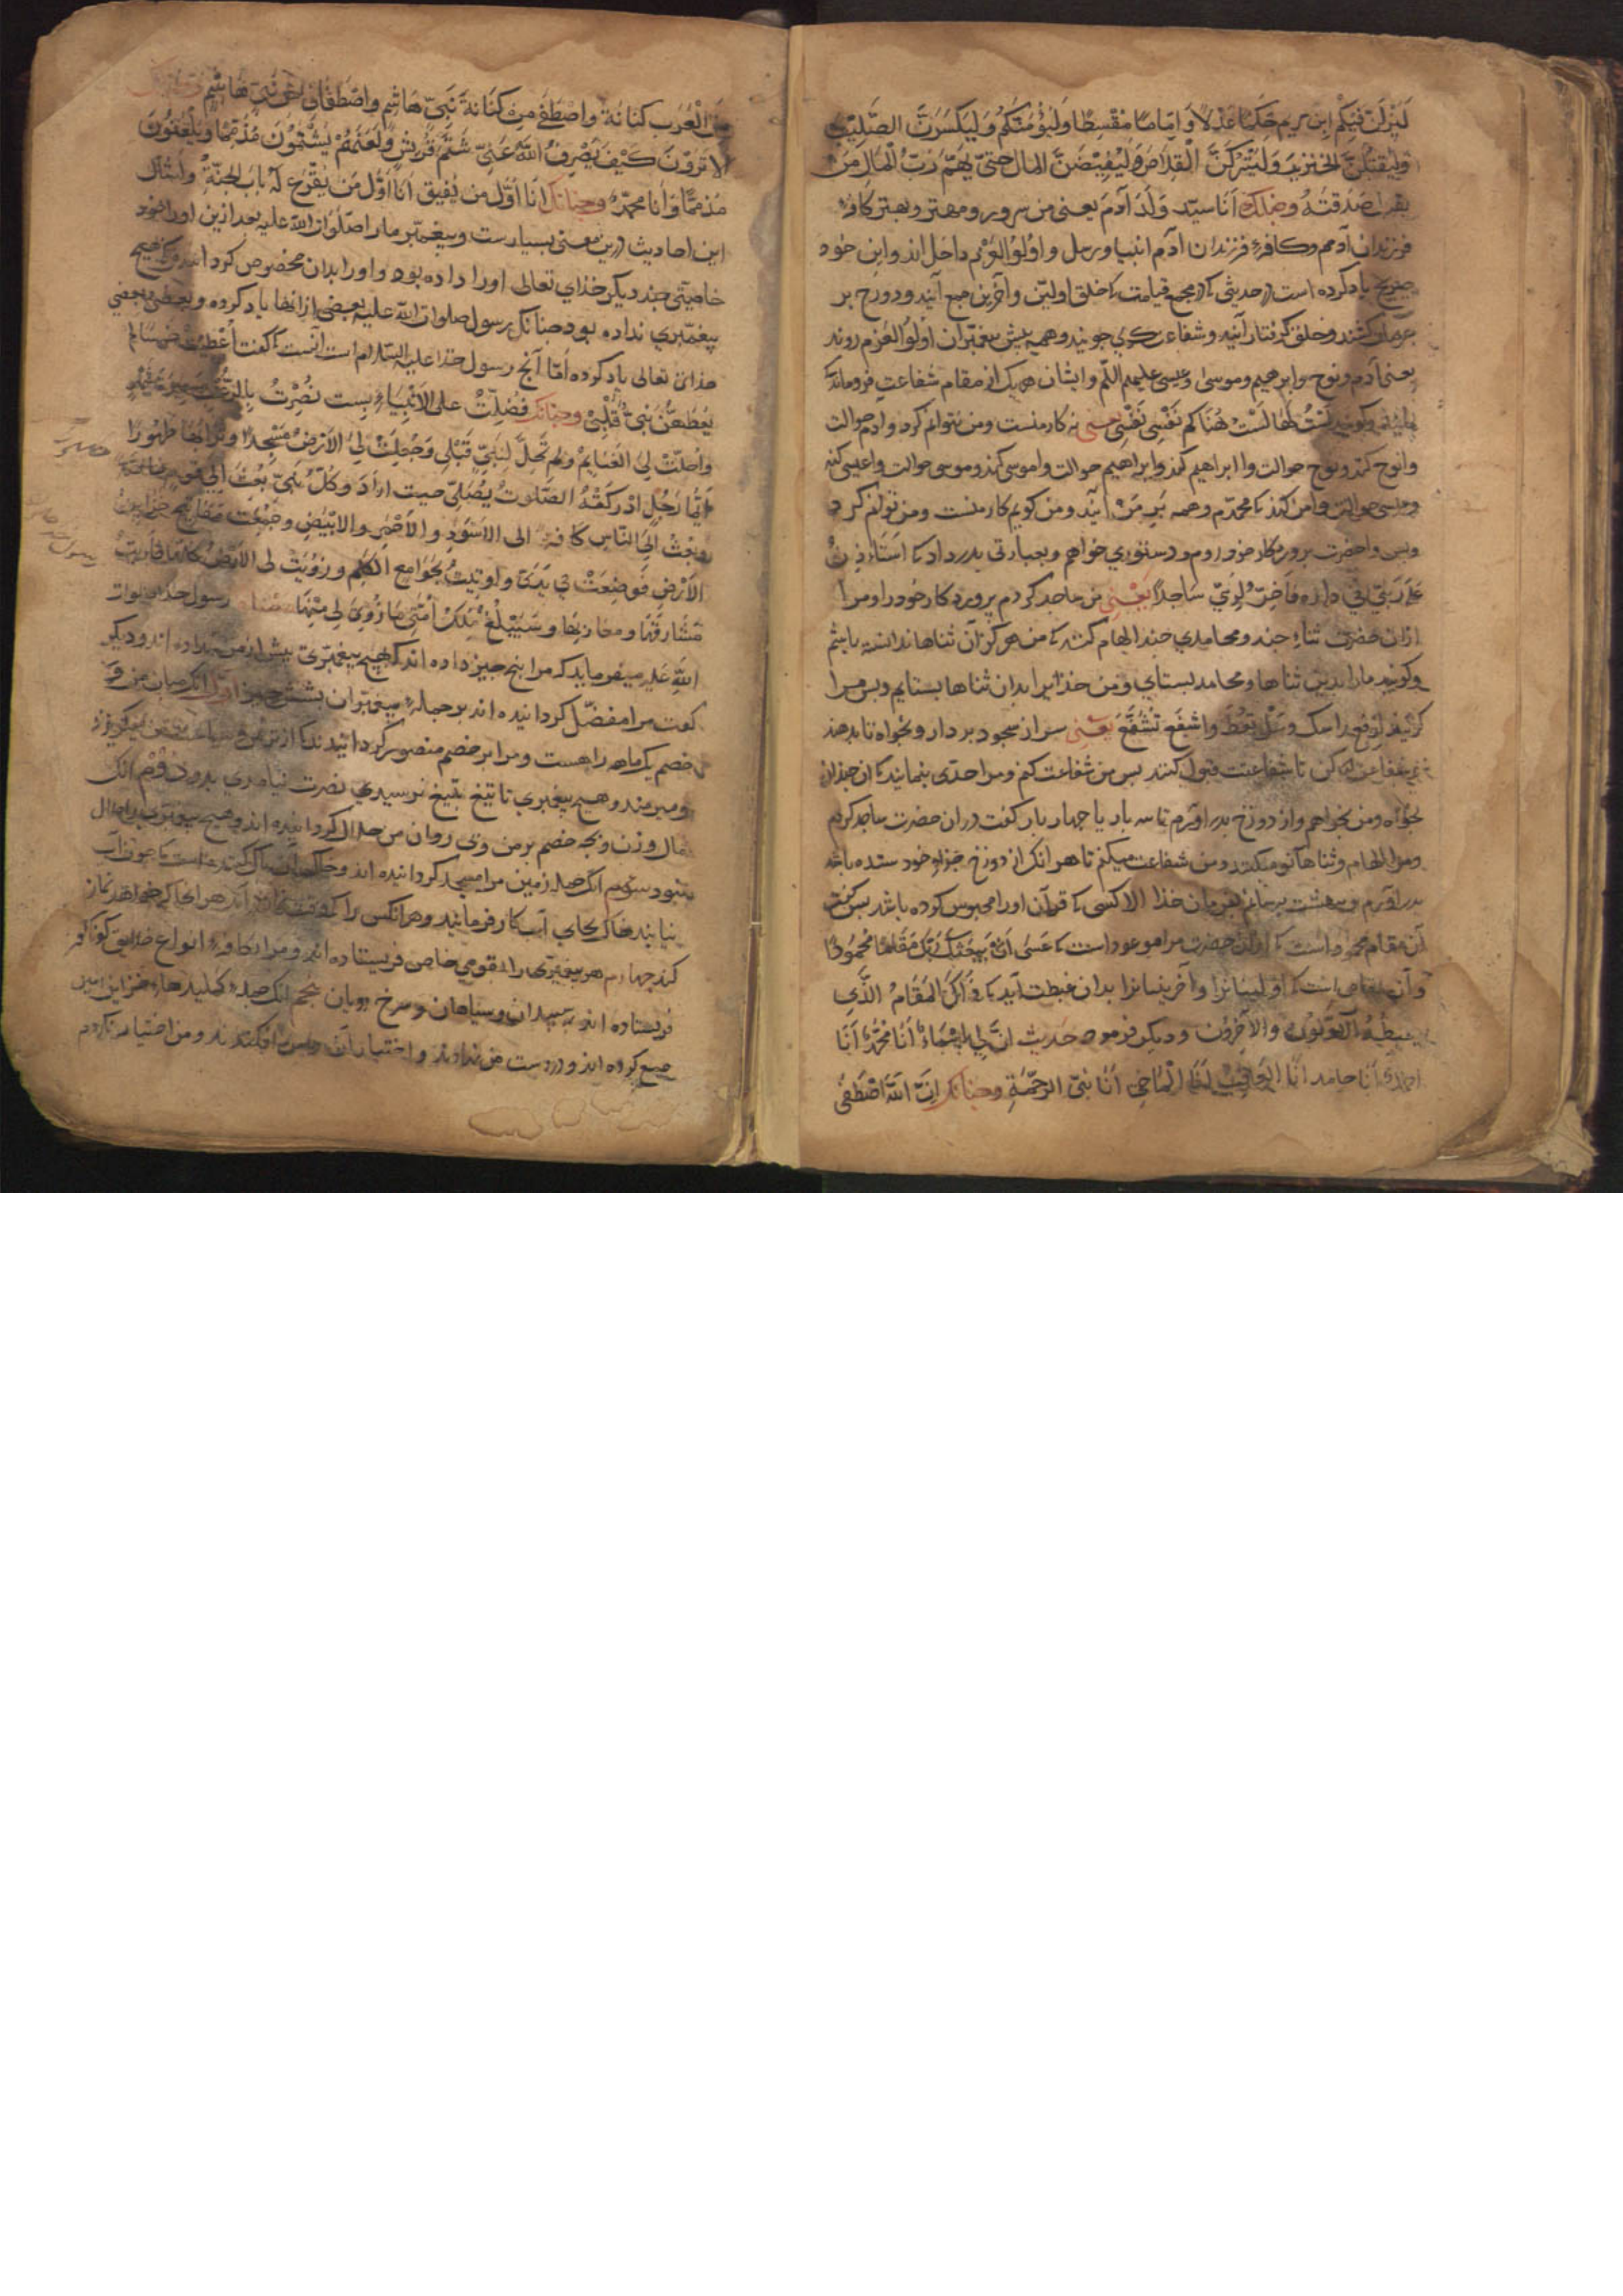 لَیَنْزِلَنَّ فیکُمْ ابن مریم حَکَمًا عَدْلاً وَ اِمَامًا مُقْسِطًا وَلَیَؤُمَّنَّکُم وَلَیَکْسِرَنَّ الصَّلِیبَ
وَلَیَقْتُلَنَّ الخنزیرَ وَلَیَتْرُکَنَّ القِلَاصَ وَلَیَفِیضَنَّ المال حتّی یُهِمَّ رَبَّ المَالِ مَنْ
یقبل صَدَقَتَهُ وچنانک اَنَا سیّد وَلَدِ آدَمَ یعنی من سرور و مهتر و بهتر کافهٔ
فرزندان آدمم و کافهٔ فرزندان آدم انبیا و رسل و اُولُو العَزْم داخل‌اند و این خود
صریح یاد کرده است در حدیثی که در مجمع قیامت که خلق اولین و آخرین جمع آیند و دوزخ بر
کشند و خلق گرفتار آیند و شفاعت‌گری جویند و همه پیش پیغمبران اولُوا العَزم روند
یعنی آدم و نوح و ابرهیم و موسی و عیسی علیهم السّلم و ایشان هر یک از مقام شفاعت فرومانند
و گویند لَسْتُ لَهَا لَسْتُ هُنَاکُم نَفْسِی نَفْسِی یعنی نه کار منست و من نتوانم کرد و آدم حوالت
وا نوح کند و نوح حوالت وا ابراهیم کند و ابراهیم حوالت وا موسی کند و موسی حوالت وا عیسی کند
و عیسی حوالت وا من کند که محمّدم و همه بَرِ مَن آیند و من گویم کار منست و من توانم کرد
و پس وا حضرت پروردگار خود روم و دستوری خواهم و بعبارتی بدرداد که اَستَأذِنُ
عَلَی رَبِّی فی داره فَاَخِرُّ لِرَبِّی سَاجِدًا یَعْنِی من ساجد گردم پروردگار خود را و مرا
از آن حضرت ثناء چند و محامدی چند الهام کنند که من هرگز آن ثناها ندانسته باشم
و گویند ما را بدین ثناها و محامد بستای و من خدایرا بدان ثناها بستایم و پس مرا
گویند اِرْفَع رَاسَک وَسَلْ تُعْطَ وَاشْفَع تُشَفَّع یعنی سر از سجود بردار و بخواه تا بدهند
شفاعت کن تا شفاعتت قبول کنند پس من شفاعت کنم و مرا حدّی بنمایند که از چندان
بخواه و من بخواهم و از دوزخ بدر آورم تا سه بار یا چهار بار گفت در آن حضرت ساجد گردم
و مرا الهام و ثناها نو میکنند و من شفاعت میکنم تا هر آنک از دوزخ جزاء خود ستده باشد
بدر آورم و ببهشت برسانم بفرمان خدا الا کسی که قرآن او را محبوس کرده باشد پس گفت
آن مقام محمود است که از آن حضرت مرا موعود است که عَسَی اَنْ یَبْعَثَکَ رَبُّکَ مَقَامًا مَحْمُودًا
و آن مقامی است که اولینیانرا و آخرینیانرا بدان غبطت آید که ذَلِکَ المَقَامُ الَّذِی
یغبِطُهُ الاَوّلُونَ وَالآخِرُون و دیگر فرموده حَدِیث اِنَّ لِی اَسْمَاءً اَنَا مُحَمَّدٌ اَنَا
احمد اَنَا حامد اَنَا العَاقِبُ اَنَا المَاحِی اَنَا نَبِیّ الرَحْمَةِ وچنانک اِنَّ اللهَ اصْطَفَی
مِنَ العَرَب کنانَةَ وَاصْطَفَی مِن کنَانَةَ بَنِی هَاشِم وَاصْطَفَانِی مِن بَنِی هَاشِم
اَلا تَرَوْنَ کَیْفَ یَصْرِفُ اللهُ عَنِّی شَتْمَ قُرَیْشٍ وَلَعْنَهُمْ یَشْتِمُونَ مُذَمَّمًا وَیَلْعَنُونَ
مُذَمَّمًا وَ اَنَا مُحَمَّدٌ وچنانک اَنَا اَوَّل من یُفِیق اَنَا اَوَّل مَن یُقْرَع لَهُ بَابُ الجَنَّةِ و امثال
این احادیث درین معنی بسیارست و پیغمبر ما را صلوات الله علیه بعد ازین
خاصیّتی چند دیگر خدای تعالی او را داده بود و او را بدان مخصوص گردانیده که هیچ
پیغمبری نداده بود چنانک رسول صلوات الله علیه بعضی از آنها یاد کرده و بعضی
خدای تعالی یاد کرده امّا آنچ رسول خدا علیه السّلام است آنست که گفت اُعْطِیتُ خمسًا لم
یُعْطَهُنَّ نَبِیٌّ قَبْلِی وچنانک فُضِّلْتُ علی الاَنْبِیَاءِ بِست نُصِرْتُ بِالرُّعْبِ مَسِیرَةَ شَهْرٍ
واُحِلَّتْ لِی الغَنَایِمُ وَلَم تَحِلَّ لِنَبِیٍّ قَبْلِی وَجُعِلَتْ لِیَ الاَرْضُ مَسْجِدًا وَتُرَابُهَا طَهُورًا
اَیُّمَا رَجُلٍ اَدْرَکَتْهُ الصَّلوتُ یُصَلِّی حیث اَرَادَ وَکُلُّ نَبِیٍّ بُعِثَ اِلی قومه خاصّةً
وبُعِثْتُ اِلَی النَّاسِ کَافَّةً الی الاَسْوَدِ وَالاَحْمَرِ والاَبْیَضِ وَجُمِعَت مَفَاتِیح خَزَاین
الاَرْضِ فَوُضِعَتْ فی یَدَیَّ وَاُوتِیتُ بِجَوَامِعِ الکَلِم وَزُوِیَتْ لی الاَرْضُ کُلُّهَا فَاُرِیتُ
مَشَارِقَهَا وَمغَارِبَهَا وَسَیَبْلُغُ مُلْکُ اُمَّتِی مَا زُوِیَ لِی مِنْهَا رسول خدا صلوات
الله عَلَیه میفرماید که مرا پنج چیز داده‌اند که هیچ پیغمبری پیش از من نداده‌اند و دیگر
گفت مرا مفضّل گردانیده‌اند بر جملهٔ پیغمبران بشش چیز اوّل آنک میان من و
خصم یک ماهه راهست و مرا بر خصم منصور گردانیدند که از ترس من میگریزد
و میرمند و هیچ پیغمبری تا تیغ بتیغ نرسیدی نصرت نیامدی بدو دوّم آنک
مال و زن و بچه خصم بر من و بر روان من حلال گردانیده‌اند و هیچ پیغمبری را حلال
نبود سیوم آنک جملهٔ زمین مرا مسجد گردانیده‌اند و خاک آن پاک‌کننده است که چون آب
نیابند خاک بجای آب کار فرمایند و هر آنکس را که وقت نماز آید هر کجا که خواهد نماز
کند چهارم هر پیغمبری را بقومی خاص فرستاده‌اند و مرا بکافهٔ انواع خلایق گوناگون
فرستاده‌اند بسپیدان و سیاهان و سرخ رویان پنجم آنک جملهٔ کلیدهاء خزاین زمین
جمع کرده‌اند و در دست من نهادند و اختیار آن و من اختیار نکردم